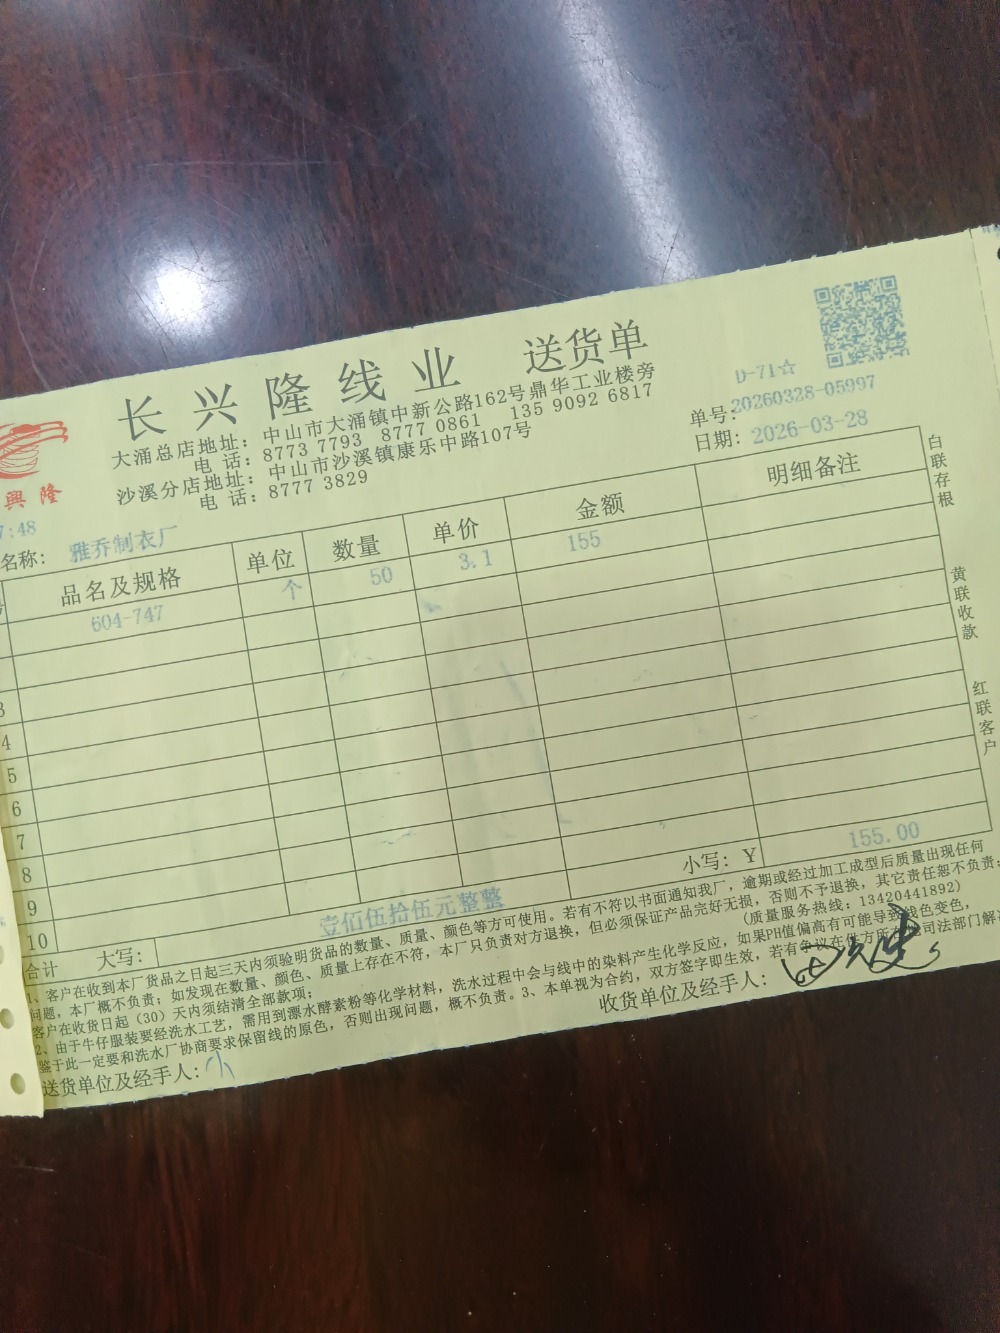 長興隆线业 送货单
大涌总店地址：中山市大涌镇中新公路162号鼎华工业楼旁
电 话：8773 7793 8777 0861 135 9092 6817
沙溪分店地址：中山市沙溪镇康乐中路107号
电 话：8777 3829
D-71☆
单号：20260328-05997
日期：2026-03-28
興 隆
7:48
名称： 雅乔制衣厂
品名及规格 单位 数量 单价 金额 明细备注
604-747 个 50 3.1 155
3
4
5
6
7
8
9
10
合计 大写： 壹佰伍拾伍元整整 小写：Y 155.00
白联存根
黄联收款
红联客户
1、客户在收到本厂货品之日起三天内须验明货品的数量、质量、颜色等方可使用。若有不符以书面通知我厂，逾期或经过加工成型后质量出现任何
问题，本厂概不负责；如发现在数量、颜色、质量上存在不符，本厂只负责对方退换，但必须保证产品完好无损，否则不予退换，其它责任恕不负责；
客户在收货日起（30）天内须结清全部款项； (质量服务热线：13420441892)
2、由于牛仔服装要经洗水工艺，需用到漂水酵素粉等化学材料，洗水过程中会与线中的染料产生化学反应，如果PH值偏高有可能导致线色变色，
鉴于此一定要和洗水厂协商要求保留线的原色，否则出现问题，概不负责。3、本单视为合约，双方签字即生效，若有争议在供方所在 司法部门解
送货单位及经手人：小 收货单位及经手人：